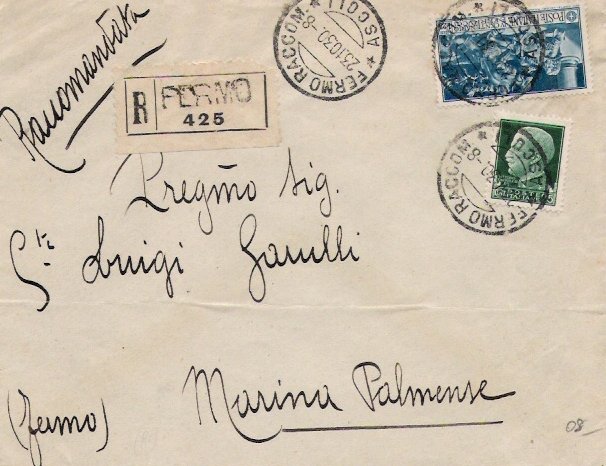 Raccomandata
R FERMO
425
FERMO RACCOM * ASCOLI *
23.10.30-8
POSTE ITALIANE
FERMO RACCOM
Pregmo Sig.
Luigi Garulli
Marina Palmense
(Fermo)
08-